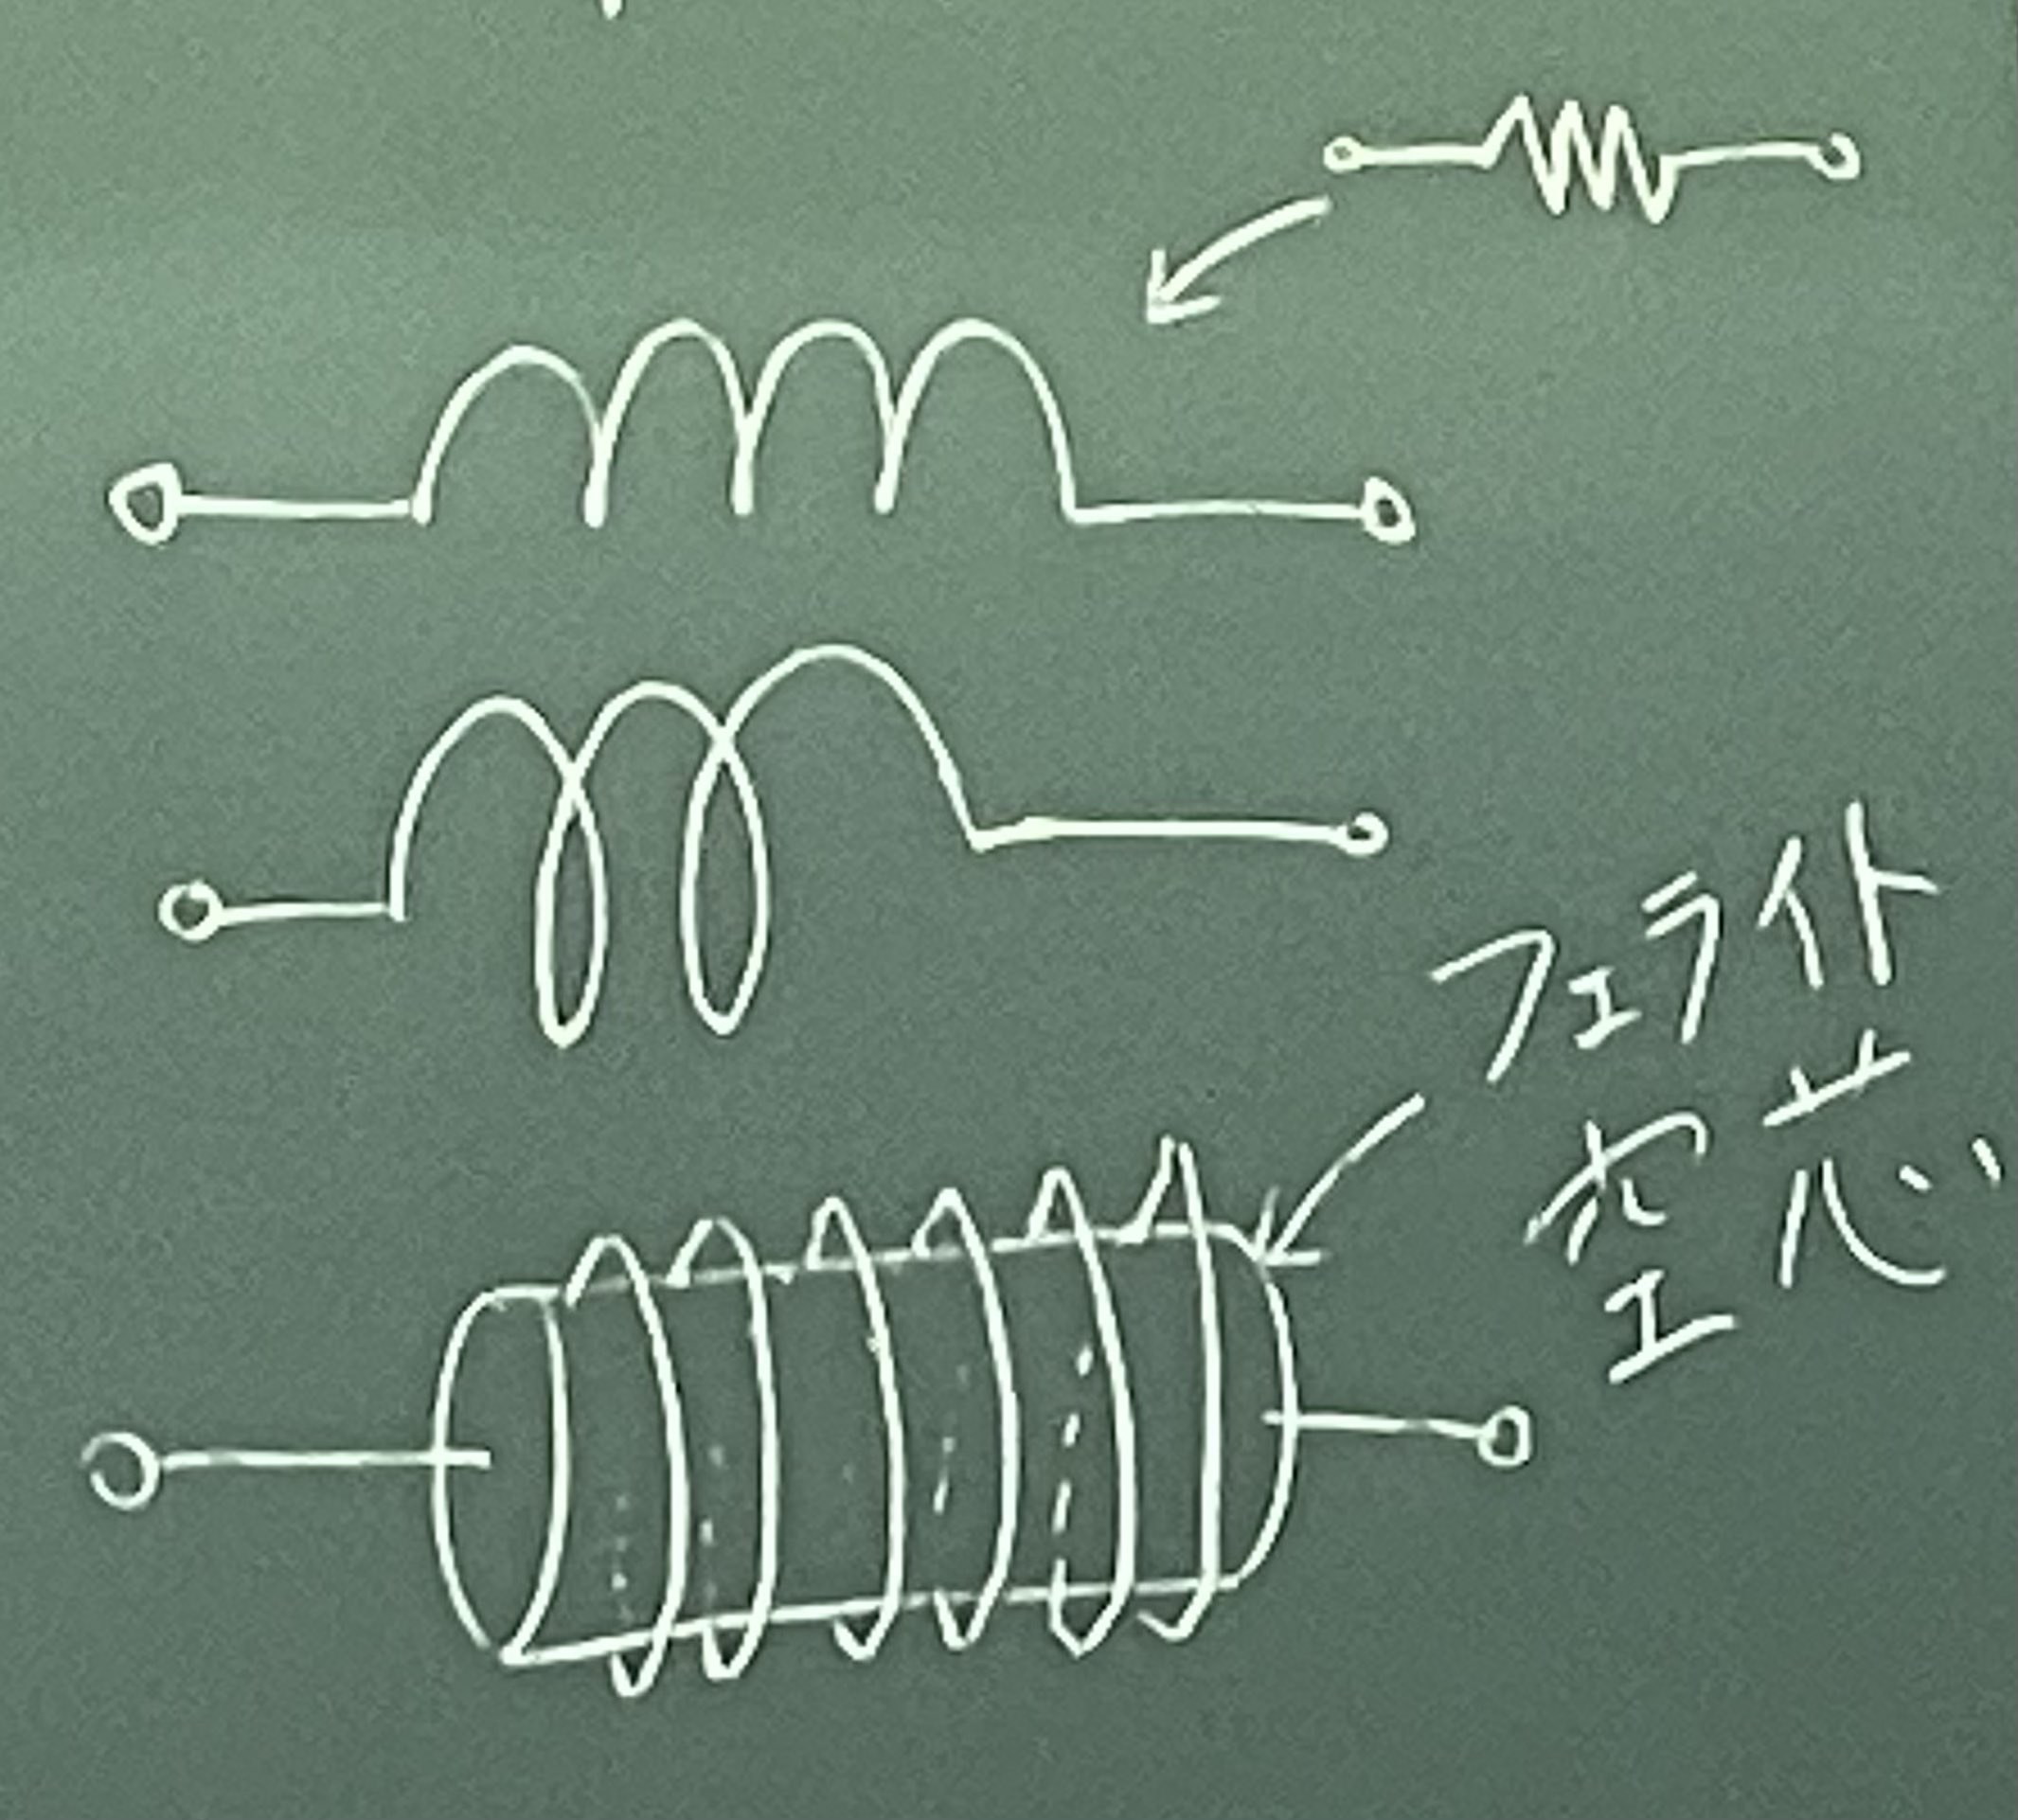 フェライト
空芯